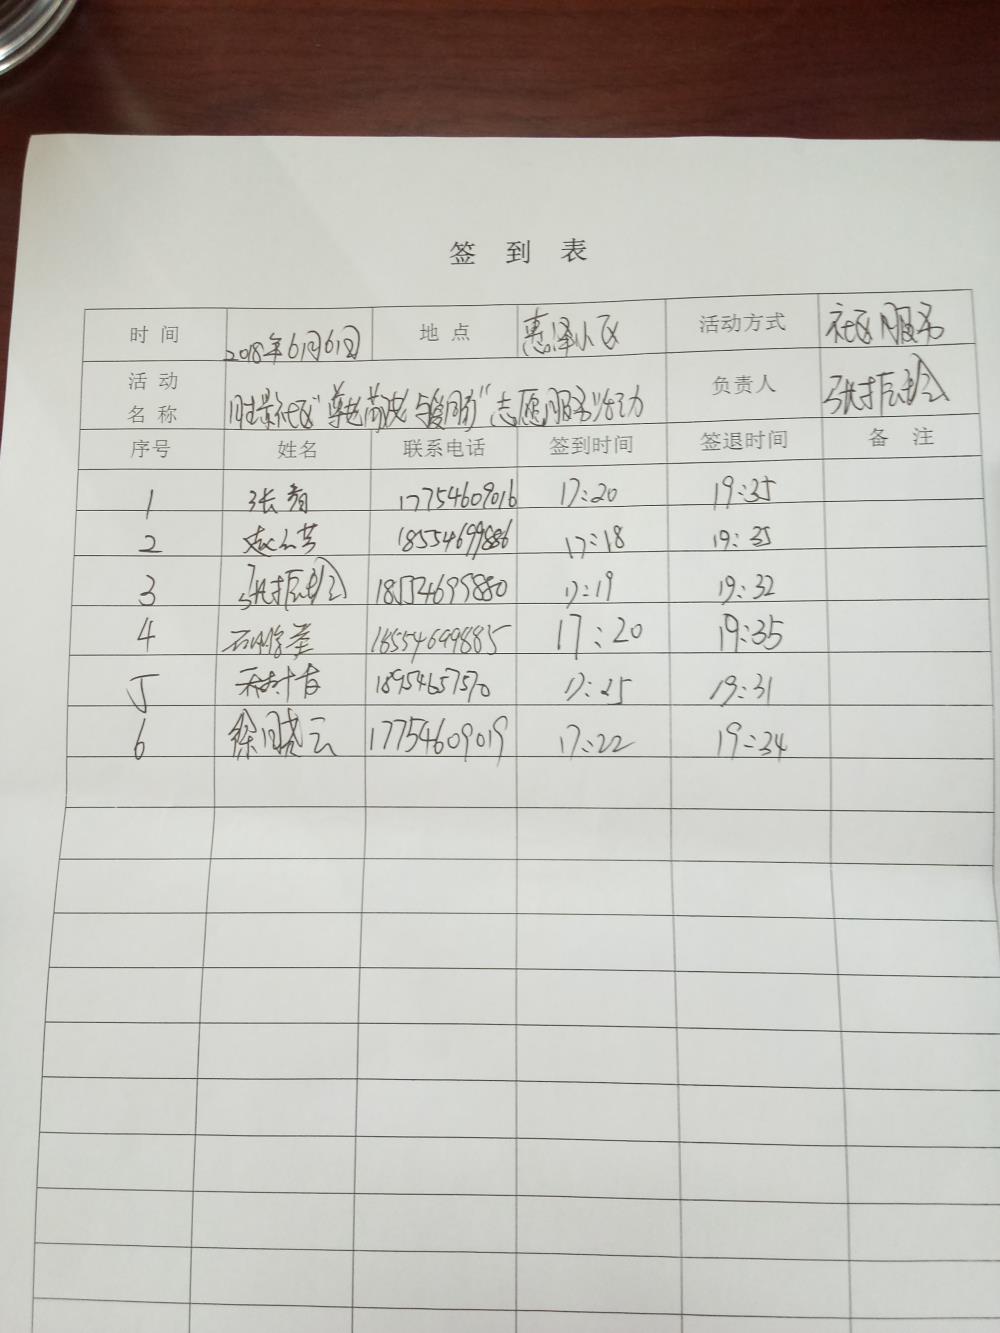 签 到 表
时 间 2018年6月6日 地 点 惠泽小区 活动方式 社区服务
活 动 名 称 社区"尊老 爱同行"志愿服务活动 负责人 张振玲
序号 姓名 联系电话 签到时间 签退时间 备 注
1 张青 17754609016 17:20 19:35
2 18554699886 17:18 19:35
3 张振玲 18554699880 17:19 19:32
4 18554699885 17:20 19:35
5 18954657570 17:25 19:31
6 徐晓云 17754609019 17:22 19:34